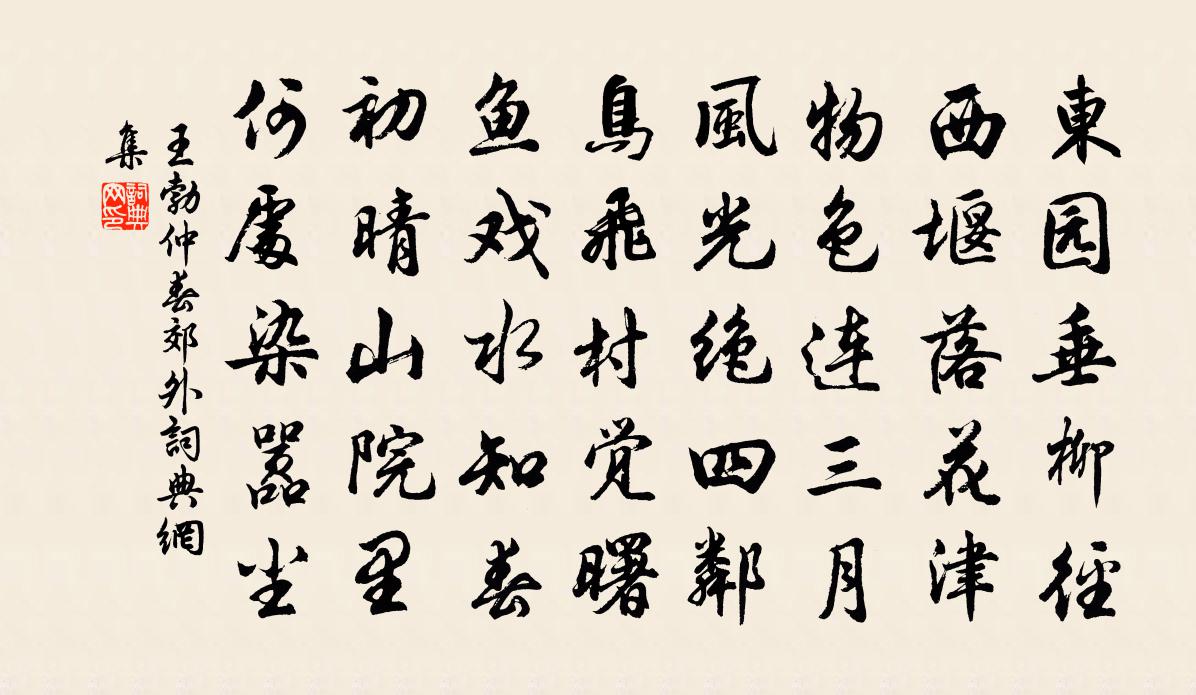 東园垂柳径
西堰落花津
物色连三月
風光绝四鄰
鳥飛村觉曙
鱼戏水知春
初晴山院里
何處染嚣尘
王勃仲春郊外詞典網
集
詞典
网印